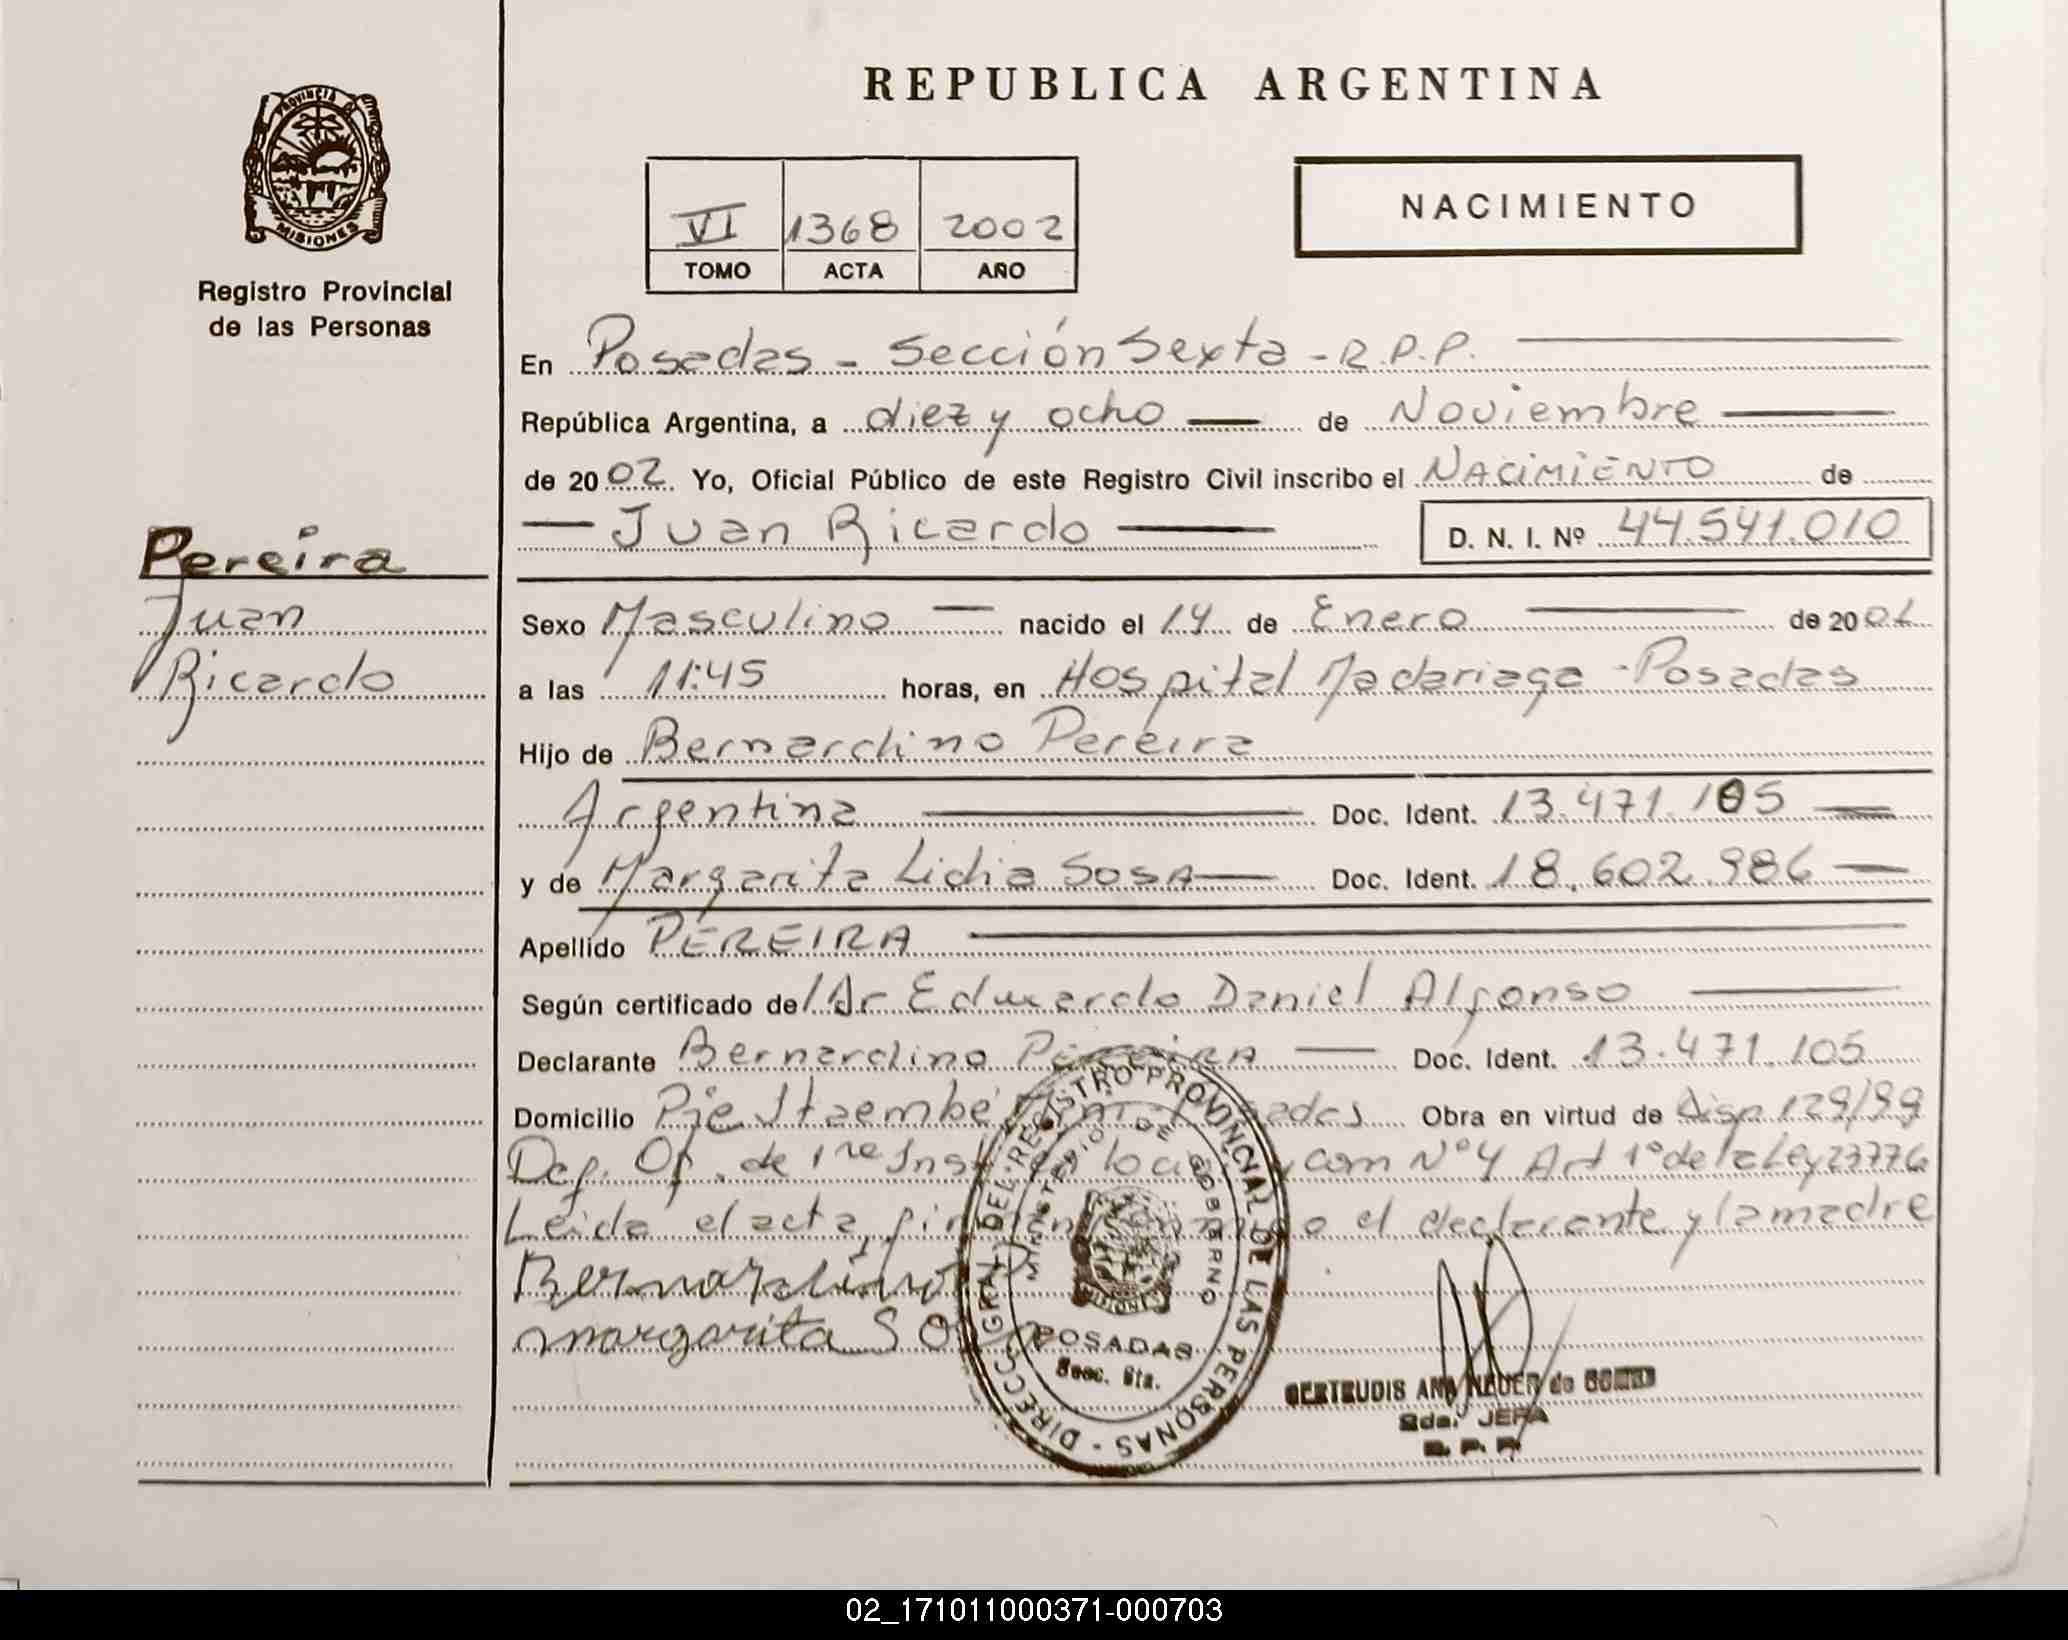 REPUBLICA ARGENTINA
PROVINCIA DE
MISIONES
Registro Provincial
de las Personas
VI 1368 2002
TOMO ACTA AÑO
NACIMIENTO
En Posadas - Sección Sexta - R.P.P.
República Argentina, a diez y ocho de Noviembre
de 2002. Yo, Oficial Público de este Registro Civil inscribo el NACIMIENTO de
Juan Ricardo D. N. I. Nº 44.541.010
Pereira
Juan
Ricardo
Sexo Masculino nacido el 14 de Enero de 2002
a las 11:45 horas, en Hospital Madariaga - Posadas
Hijo de Bernardino Pereira
Argentina Doc. Ident. 13.471.105
y de Margarita Lidia SOSA Doc. Ident. 18.602.986
Apellido PEREIRA
Según certificado de/ Dr Eduardo Daniel Alfonso
Declarante Bernardino Pereira Doc. Ident. 13.471.105
Domicilio Pje Itaembé Obra en virtud de Disp 129/99
Def. Of. de 1ra Inst com Nº 4 Art 1º de la Ley 23776
Leida el acta, firman el declarante y la madre
Bernardino
margarita SOSA
DIRECC. GRAL DEL REGISTRO PROVINCIAL DE LAS PERSONAS
MINISTERIO DE GOBIERNO
MISIONES
POSADAS
Secc. 6ta.
GERTRUDIS ANA de
2da. JEFA
R. P. P.
02_171011000371-000703